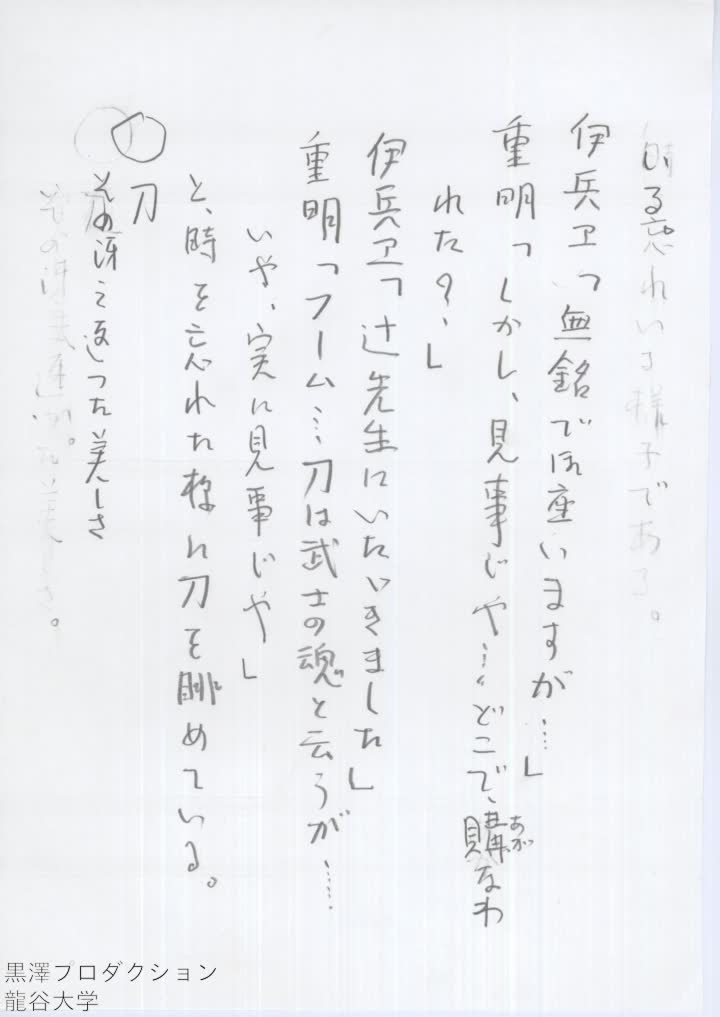 いる忘れいる様子である。
伊兵ヱ「無銘で御座いますが…」
重明「しかし、見事じゃ…どこで、購なわ
れた?」
伊兵ヱ「辻先生にいたゞきました」
重明「フーム…刀は武士の魂と云うが……
いや、実に見事じゃ」
と、時を忘れた様に刀を眺めている。
○刀
その冴え返った美しさ
黒澤プロダクション
龍谷大学